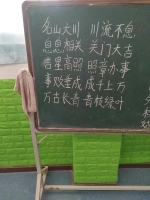 名山大川 川流不息
息息相关 关门大吉
吉星高照 照章办事
事败垂成 成千上万
万古长青 青枝绿叶